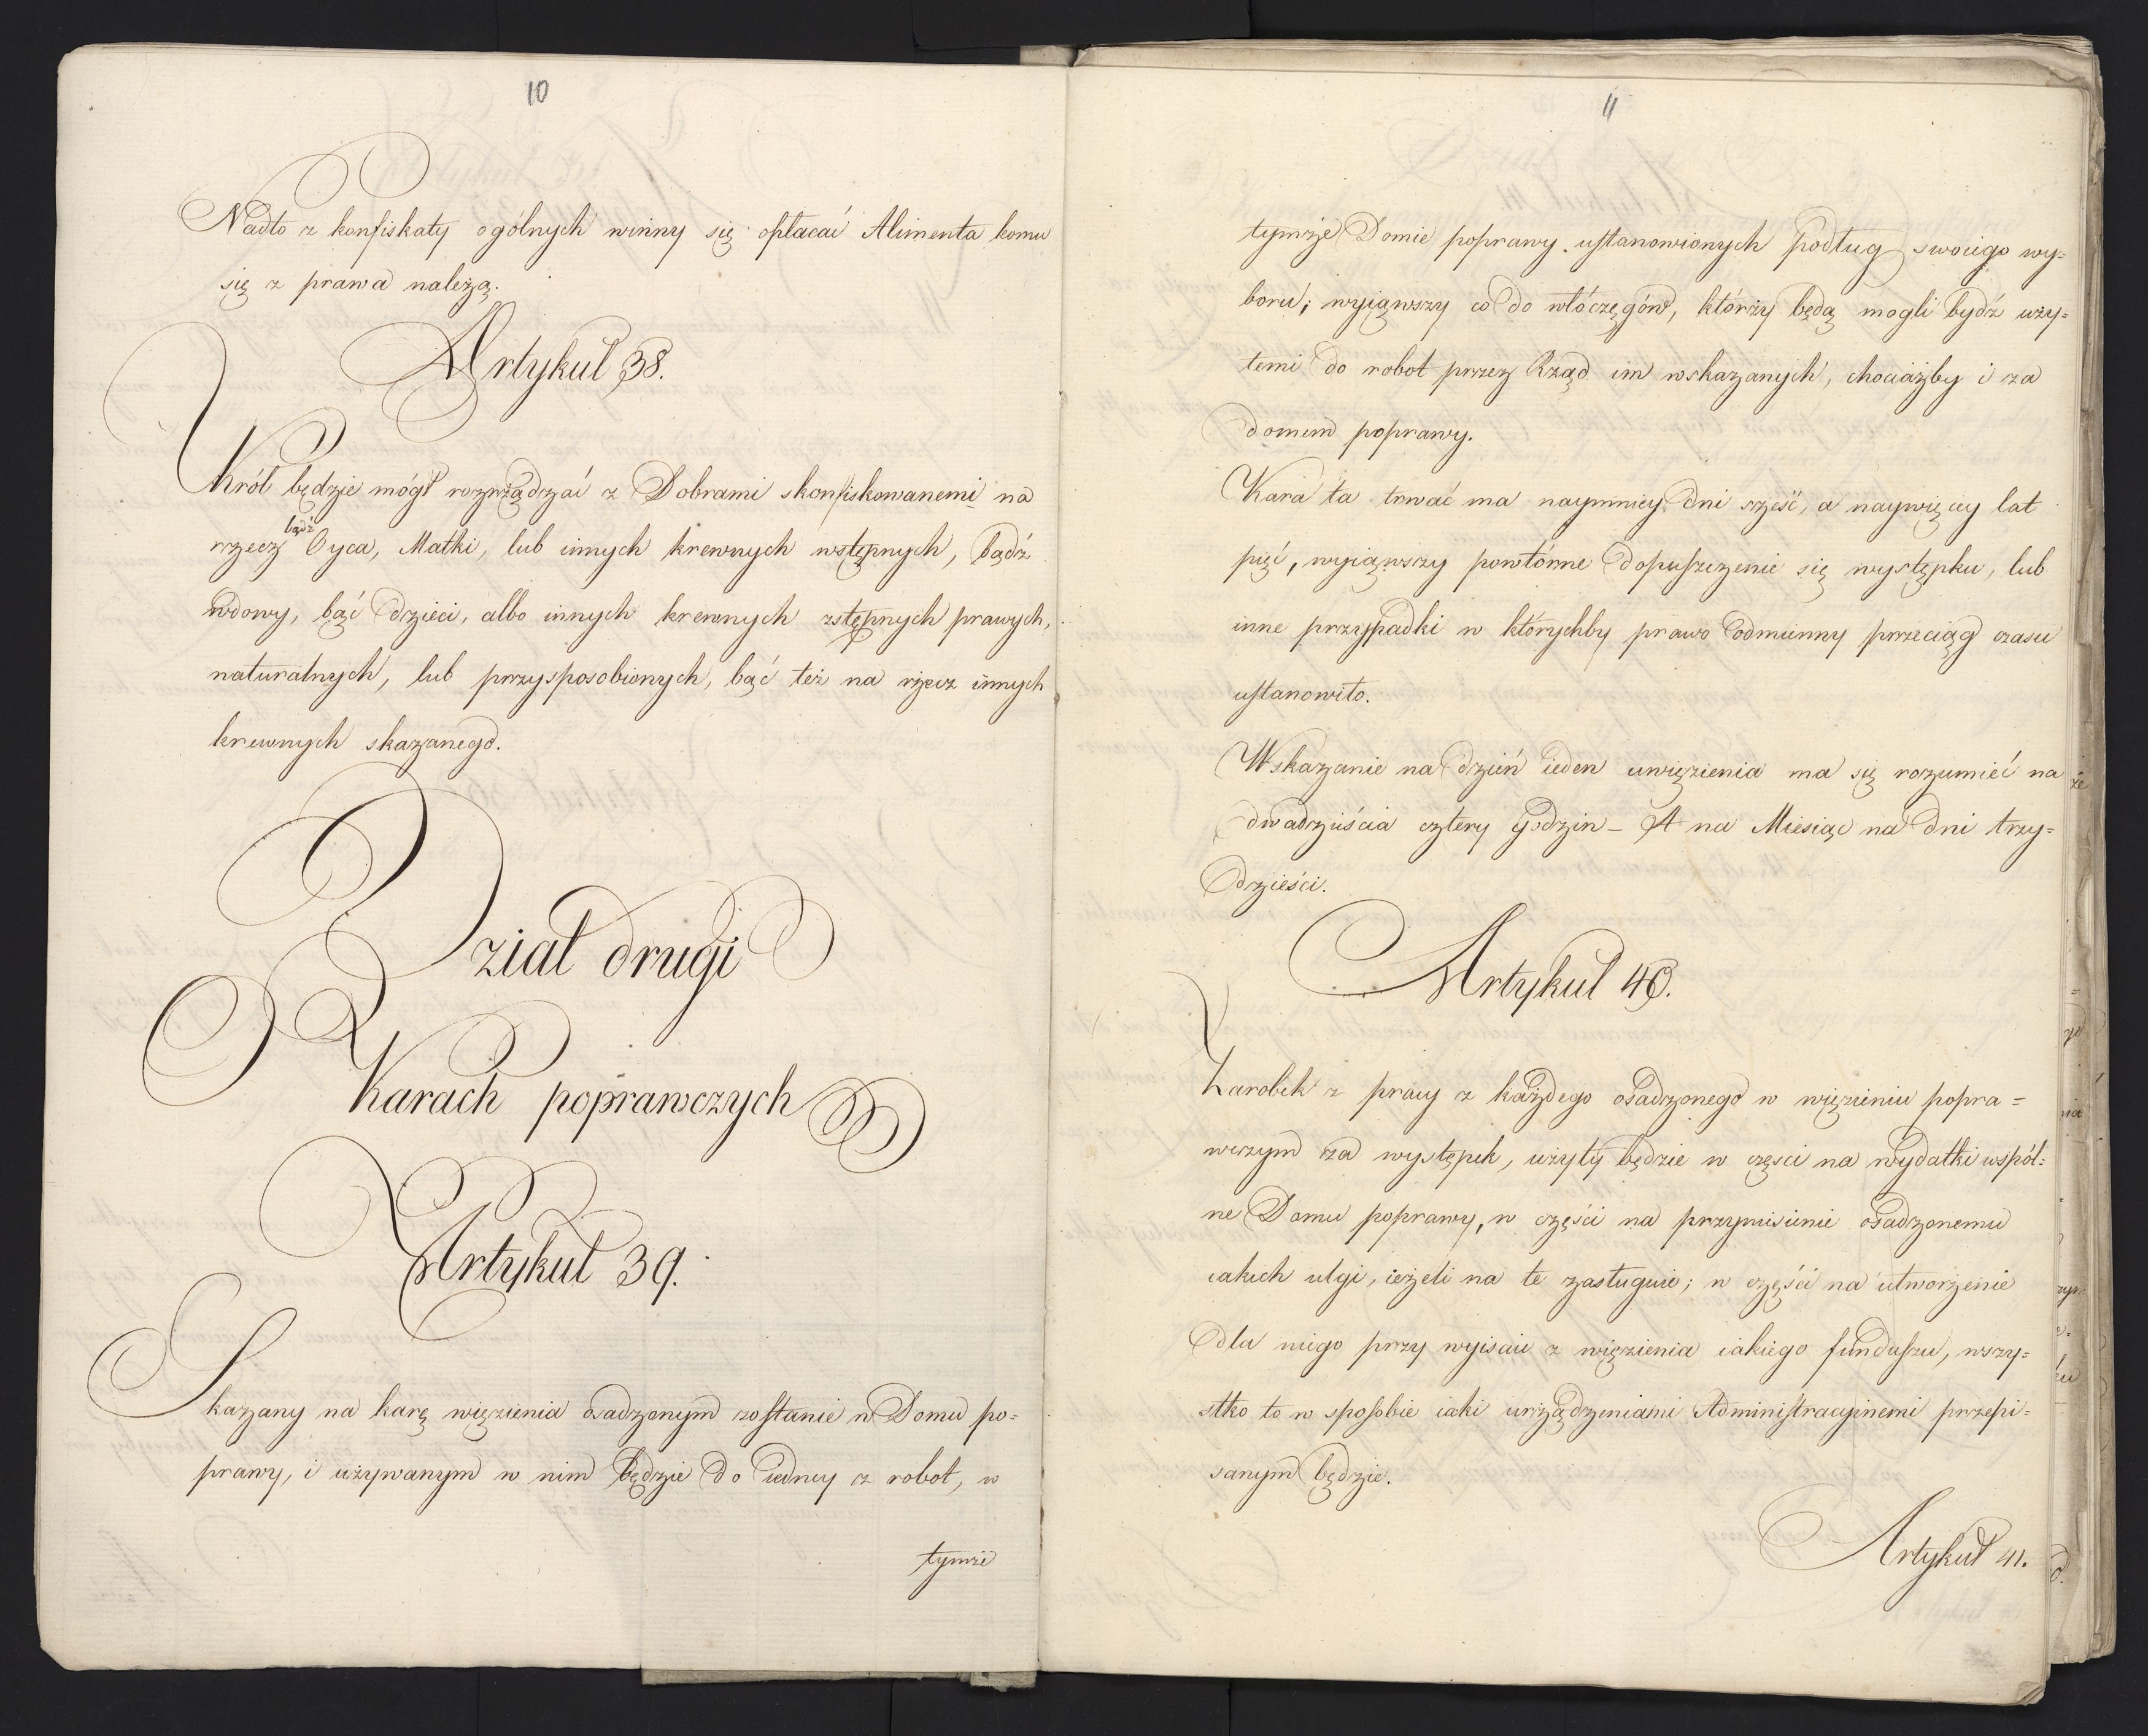 10
Nadto z konfiskaty ogólnych winny się opłacać Alimenta komu
się z prawa należą.
Artykuł 38.
Król będzie mógł rozrządzać z Dobrami skonfiskowanemi na
bądź
rzecz Oyca, Matki, lub innych krewnych wstępnych, bądź
wdowy, bąć dzieci, albo innych krewnych zstępnych prawych,
naturalnych, lub przysposobionych, bąć też na rzecz innych
krewnych skazanego.
Dział drugi
O
Karach poprawczych
Artykuł 39.
Skazany na karę więzienia osadzonym zostanie w Domu po=
prawy, i używanym w nim będzie do iedney z robot, w
tymże
11
tymże Domie poprawy ustanowionych podług swoiego wy=
boru; wyiąwszy co do włóczęgów, którzy będą mogli bydź uży=
temi do robot przez Rząd im wskazanych, chociażby i za
domem poprawy.
Kara ta trwać ma naymniey dni sześć, a naywięcey lat
pięć, wyiąwszy powtórne dopuszczenie się występku, lub
inne przypadki w którychby prawo odmienny przeciąg czasu
ustanowiło.
Wskazanie na dzień ieden uwięzienia ma się rozumieć na
dwadzieścia cztery godzin – A na Miesiąc na dni trzy=
dzieści.
Artykuł 40.
Zarobek z pracy z każdego osadzonego w więzieniu popra=
wczym za występek, użyty będzie w części na wydatki wspól=
ne Domu poprawy, w części na przyniesienie osadzonemu
iakich ulgi, ieżeli na te zasługuie; w części na utworzenie
dla niego przy wyiściu z więzienia iakiego funduszu, wszy=
stko to w sposobie iaki urządzeniami Administracyinemi przepi=
sanym będzie.
Artykuł 41.